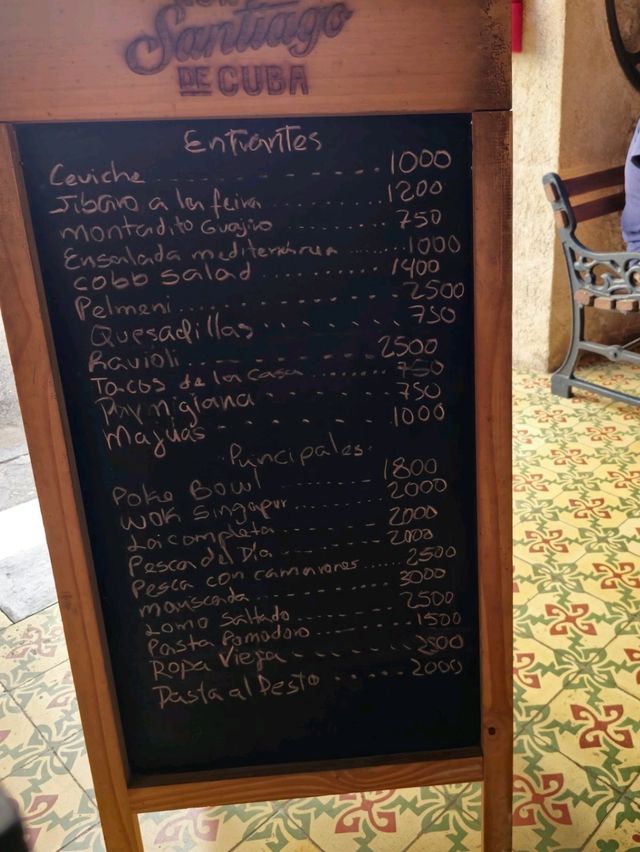 Santiago
DE CUBA
Entrantes
Ceviche 1000
Jibaro a la feira 1200
Montadito Guajiro 750
Ensalada mediterranea 1000
Cobb salad 1400
Pelmeni 2500
Quesadillas 750
Ravioli 2500
Tacos de la Casa 750
Parmigiana 750
Majuas 1000
Principales
Poke Bowl 1800
Wok Singapur 2000
La completa 2000
Pesca del Dia 2000
Pesca con camarones 2500
Mariscada 3000
Lomo Saltado 2500
Pasta Pomodoro 1500
Ropa Vieja 2500
Pasta al Pesto 2000